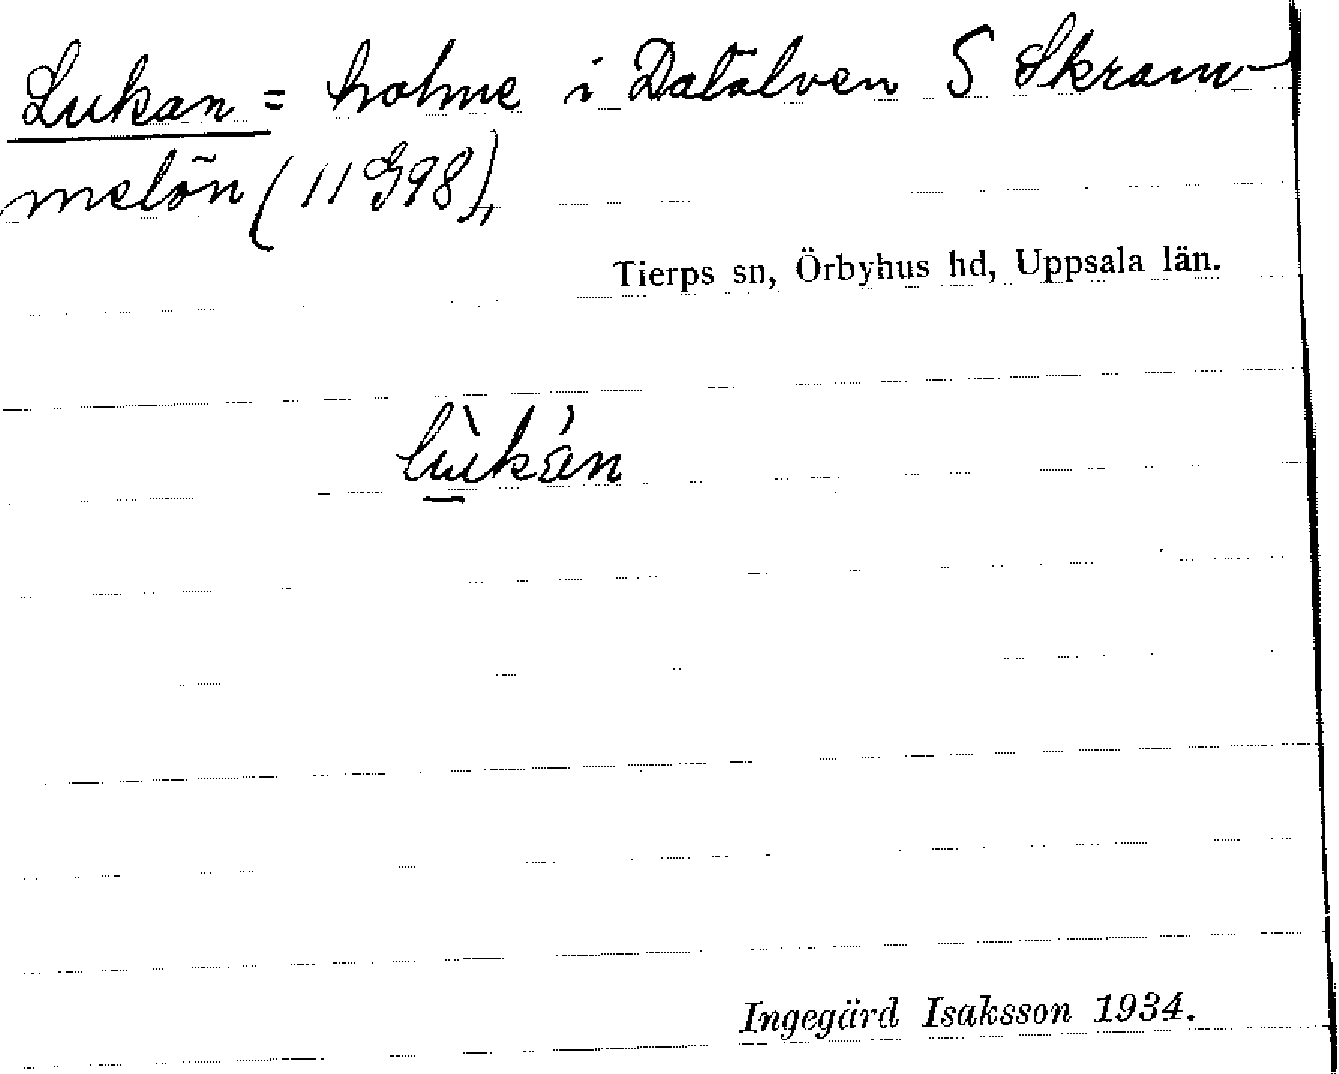 Lukan = holme i Dalälven S Skram-
melön (11 G98),
Tierps sn, Örbyhus hd, Uppsala län.
lùkán
Ingegärd Isaksson 1934.